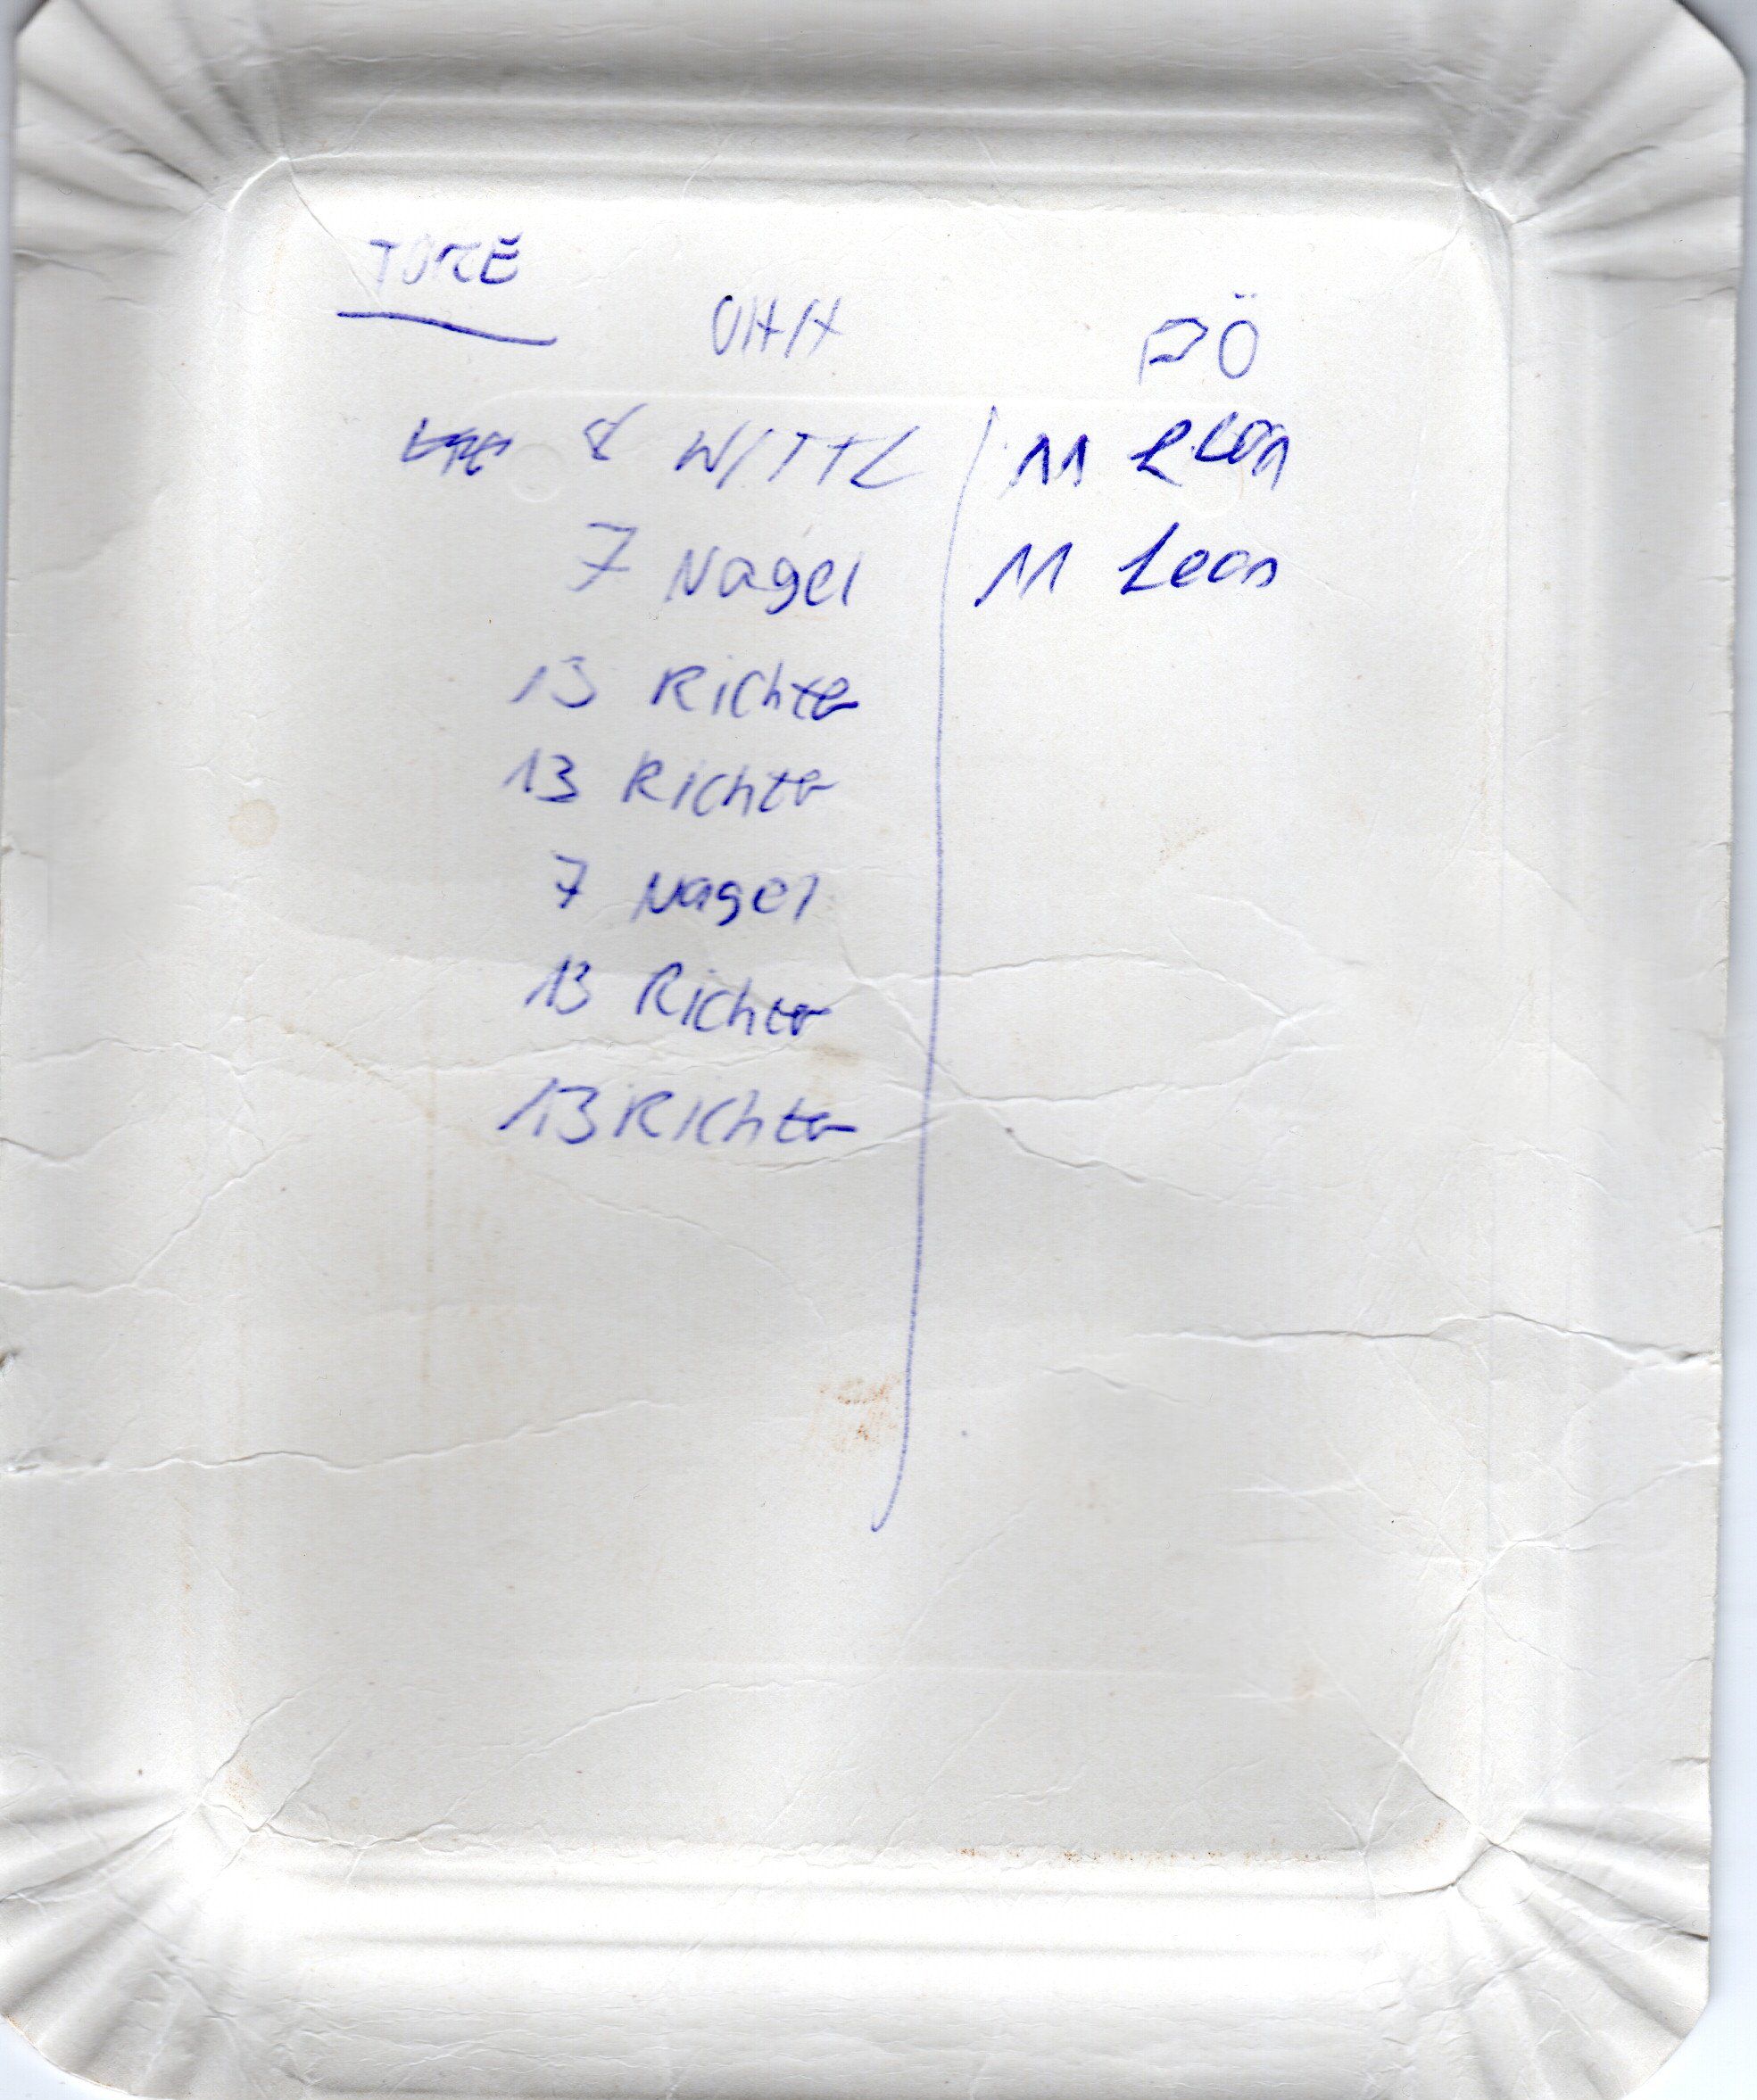 TORE
UHH PÖ
8 WITTL 11 Leon
7 Nagel 11 Leon
13 Richter
13 Richter
7 Nagel
13 Richter
13 Richter